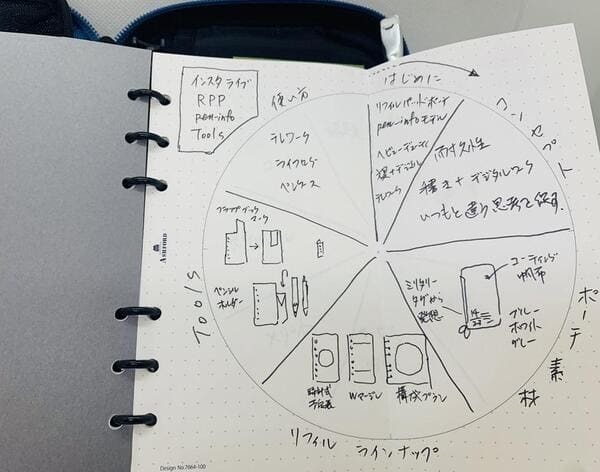 インスタライブ
RPP
pen-info
Tools
はじめに
リフィルパッドボード
pen-infoモデル
ヘビーデューティ
コンセプト
耐久性
書き+デジタルワーク
いつもと違う思考を促す.
ポーチ素材
コーティング
帆布
ミリタリー
タグから
発想
ブルー
ホワイト
グレー
リフィルラインナップ
時計式
予定表
Wマージン
構成プラン
Tools
フラップブック
マーク
ペンシル
ホルダー
使い方
テレワーク
ライフログ
ペンケース
ASHFORD
Design No.7064-100